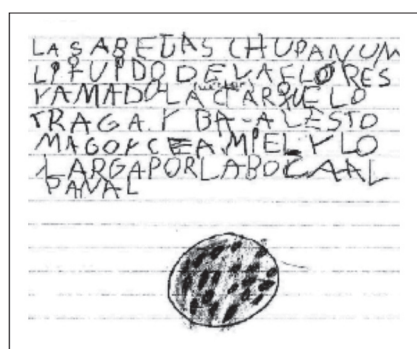 LAS ABEJAS CHUPAN UM
LIFUIDO DE LA FLORES
YAMADO LACTAR QUE LO
TRAGA. Y BA-A LESTO
MAGO Y CEA MIEL Y LO
LARGA POR LA BOCA AL
PANAL